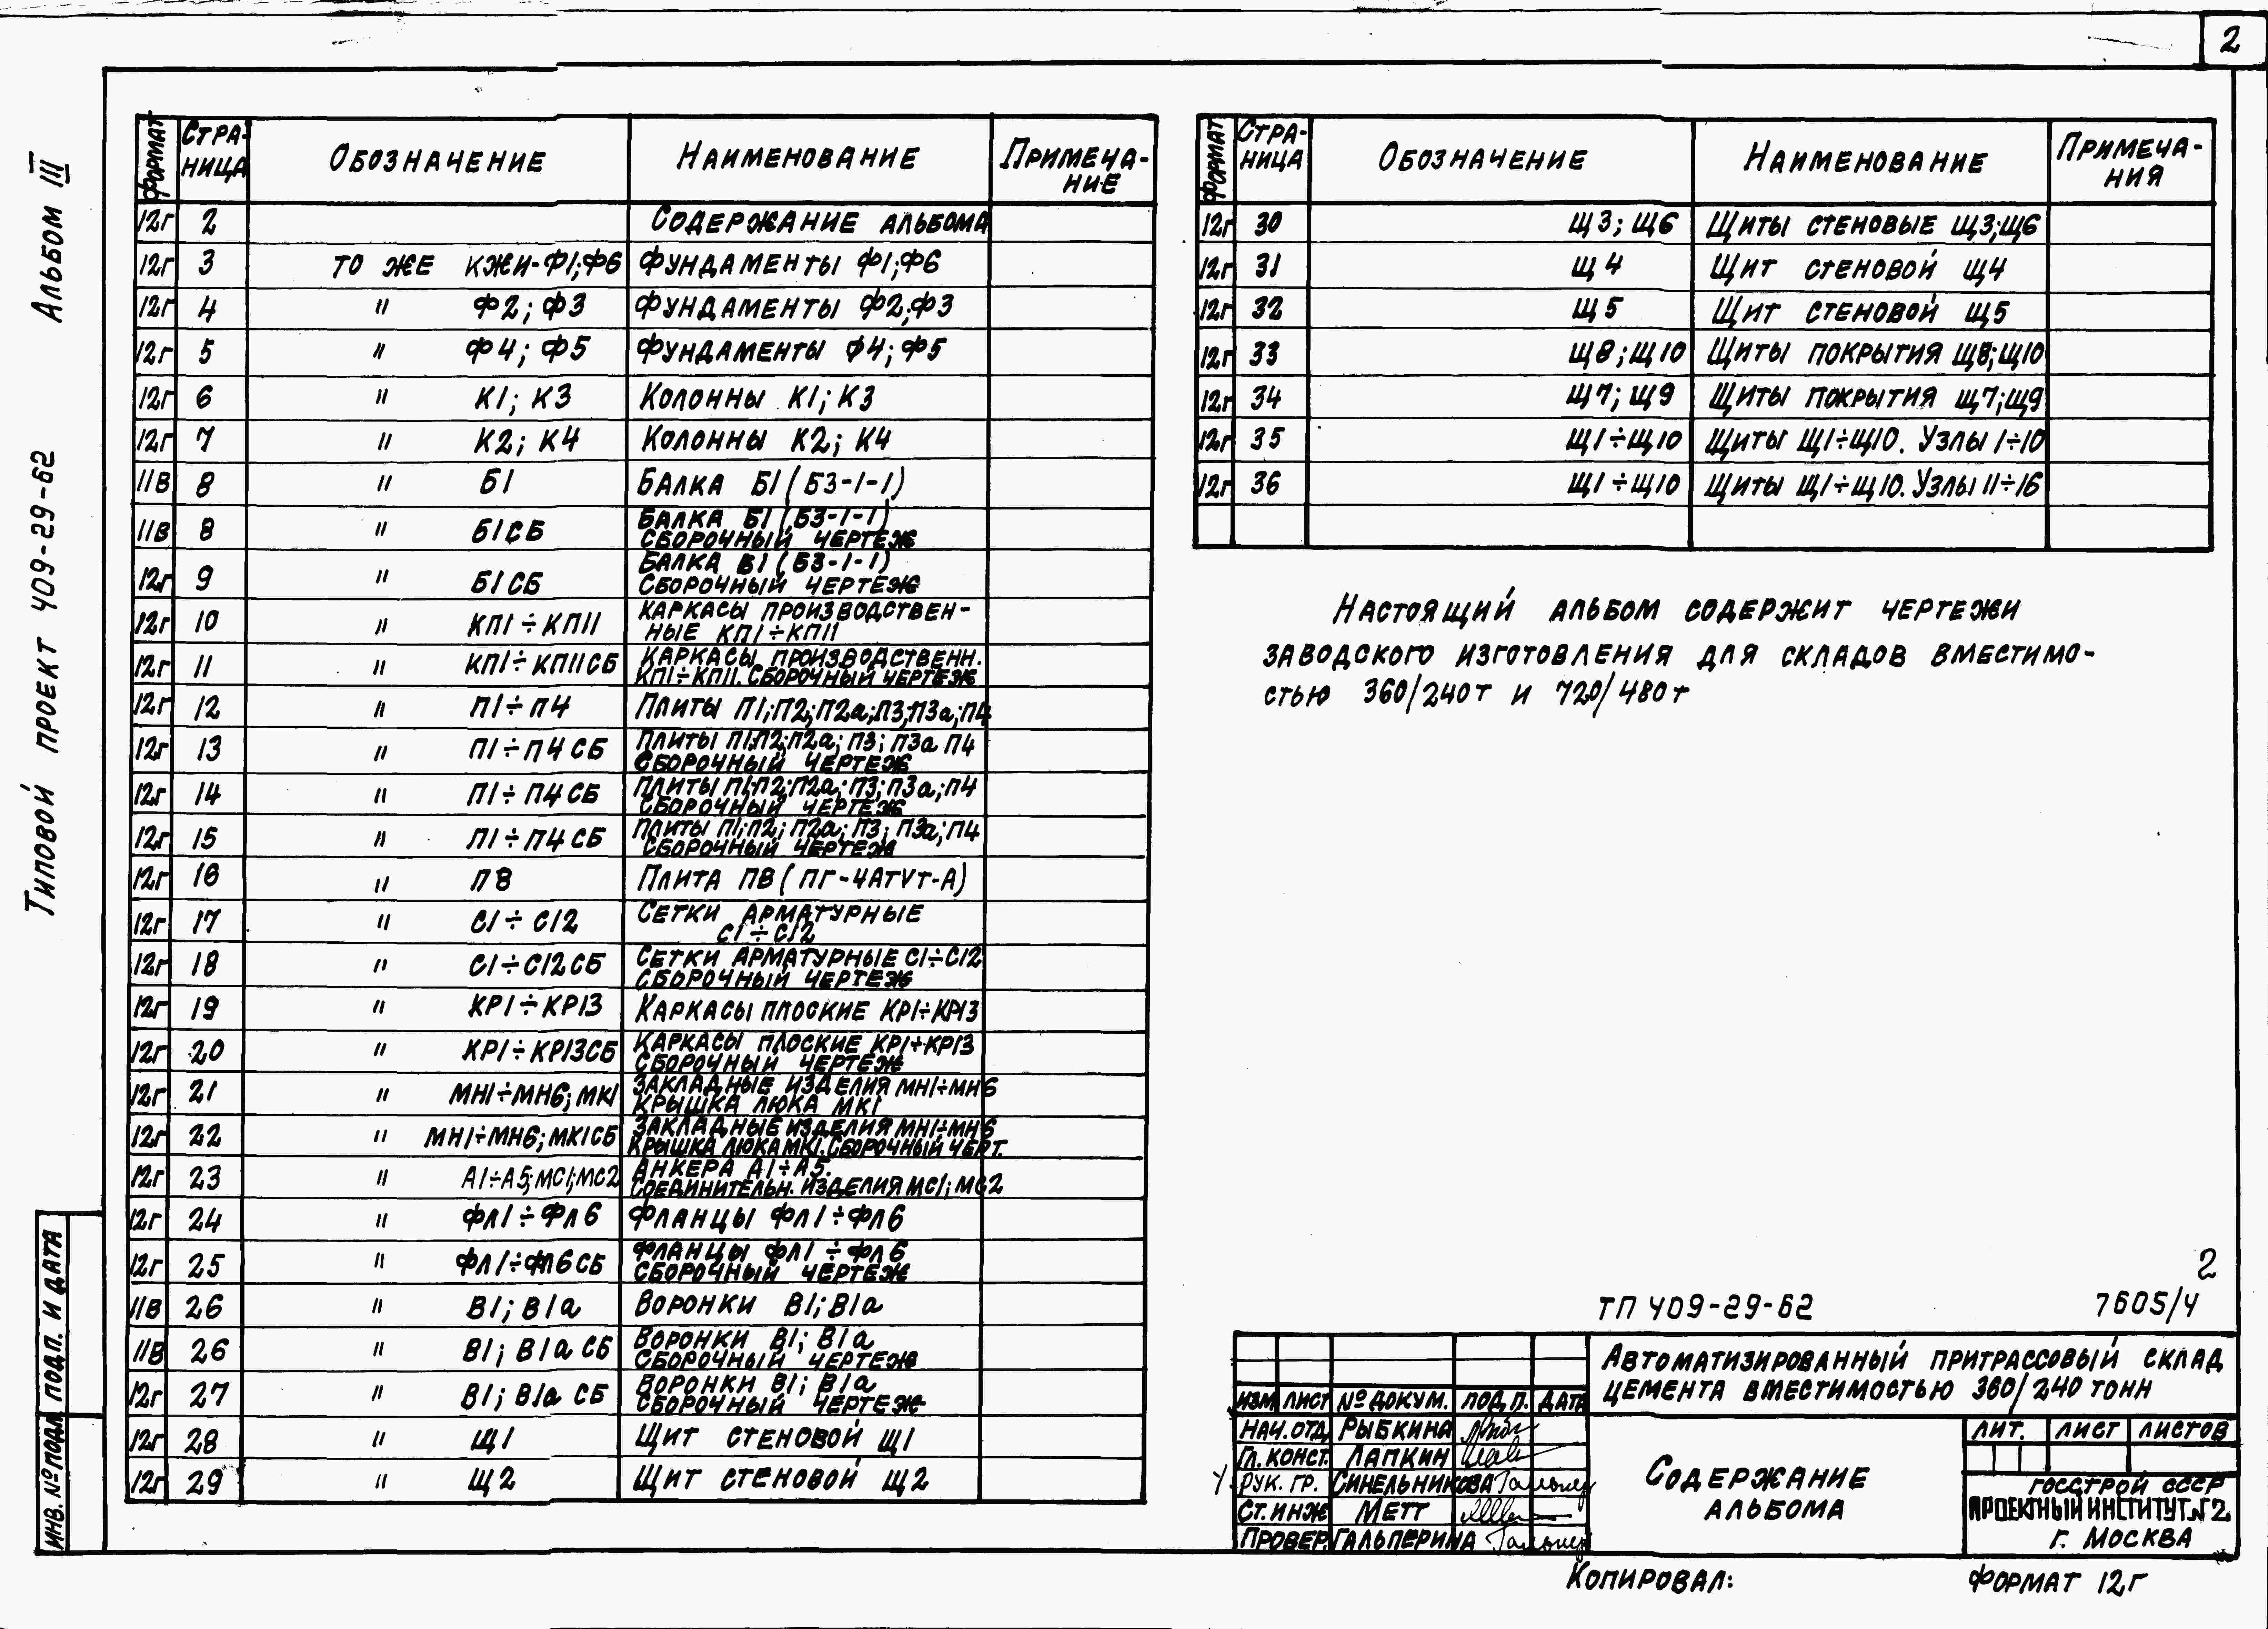 2
Альбом III
Типовой проект 409-29-62
ИНВ. № ПОДЛ. ПОДП. И ДАТА
ФОРМАТ СТРАНИЦА ОБОЗНАЧЕНИЕ НАИМЕНОВАНИЕ ПРИМЕЧАНИЕ
12г 2 СОДЕРЖАНИЕ АЛЬБОМА
12г 3 ТО ЖЕ КЖИ-Ф1;Ф6 ФУНДАМЕНТЫ Ф1;Ф6
12г 4 " Ф2; Ф3 ФУНДАМЕНТЫ Ф2;Ф3
12г 5 " Ф4; Ф5 ФУНДАМЕНТЫ Ф4; Ф5
12г 6 " К1; К3 КОЛОННЫ К1; К3
12г 7 " К2; К4 КОЛОННЫ К2; К4
11В 8 " Б1 БАЛКА Б1 (Б3-1-1)
11В 8 " Б1СБ БАЛКА Б1 (Б3-1-1)
СБОРОЧНЫЙ ЧЕРТЕЖ
12г 9 " Б1СБ БАЛКА Б1 (Б3-1-1)
СБОРОЧНЫЙ ЧЕРТЕЖ
12г 10 " КП1÷КП11 КАРКАСЫ ПРОИЗВОДСТВЕН-
НЫЕ КП1÷КП11
12г 11 " КП1÷КП11СБ КАРКАСЫ ПРОИЗВОДСТВЕНН.
КП1÷КП11. СБОРОЧНЫЙ ЧЕРТЕЖ
12г 12 " П1÷П4 ПЛИТЫ П1;П2;П2а;П3;П3а;П4
12г 13 " П1÷П4 СБ ПЛИТЫ П1;П2;П2а; П3; П3а П4
СБОРОЧНЫЙ ЧЕРТЕЖ
12г 14 " П1÷П4СБ ПЛИТЫ П1;П2;П2а; П3;П3а;П4
СБОРОЧНЫЙ ЧЕРТЕЖ
12г 15 " П1÷П4 СБ ПЛИТЫ П1;П2; П2а; П3; П3а; П4
СБОРОЧНЫЙ ЧЕРТЕЖ
12г 16 " П8 ПЛИТА П8 (ПГ-4АТVТ-А)
12г 17 " С1÷С12 СЕТКИ АРМАТУРНЫЕ
С1÷С12
12г 18 " С1÷С12СБ СЕТКИ АРМАТУРНЫЕ С1÷С12
СБОРОЧНЫЙ ЧЕРТЕЖ
12г 19 " КР1÷КР13 КАРКАСЫ ПЛОСКИЕ КР1÷КР13
12г 20 " КР1÷КР13СБ КАРКАСЫ ПЛОСКИЕ КР1÷КР13
СБОРОЧНЫЙ ЧЕРТЕЖ
12г 21 " МН1÷МН6; МК1 ЗАКЛАДНЫЕ ИЗДЕЛИЯ МН1÷МН6
КРЫШКА ЛЮКА МК1
12г 22 " МН1÷МН6; МК1СБ ЗАКЛАДНЫЕ ИЗДЕЛИЯ МН1÷МН6
КРЫШКА ЛЮКА МК1. СБОРОЧНЫЙ ЧЕРТ.
12г 23 " А1÷А5;МС1;МС2 АНКЕРА А1÷А5.
СОЕДИНИТЕЛЬН. ИЗДЕЛИЯ МС1; МС2
12г 24 " ФЛ1÷ФЛ6 ФЛАНЦЫ ФЛ1÷ФЛ6
12г 25 " ФЛ1÷ФЛ6 СБ ФЛАНЦЫ ФЛ1÷ФЛ6
СБОРОЧНЫЙ ЧЕРТЕЖ
11В 26 " В1; В1а ВОРОНКИ В1; В1а
11В 26 " В1; В1а СБ ВОРОНКИ В1; В1а
СБОРОЧНЫЙ ЧЕРТЕЖ
12г 27 " В1; В1а СБ ВОРОНКИ В1; В1а
СБОРОЧНЫЙ ЧЕРТЕЖ
12г 28 " Щ1 ЩИТ СТЕНОВОЙ Щ1
12г 29 " Щ2 ЩИТ СТЕНОВОЙ Щ2
ФОРМАТ СТРАНИЦА ОБОЗНАЧЕНИЕ НАИМЕНОВАНИЕ ПРИМЕЧАНИЯ
12г 30 Щ3; Щ6 ЩИТЫ СТЕНОВЫЕ Щ3;Щ6
12г 31 Щ4 ЩИТ СТЕНОВОЙ Щ4
12г 32 Щ5 ЩИТ СТЕНОВОЙ Щ5
12г 33 Щ8; Щ10 ЩИТЫ ПОКРЫТИЯ Щ8;Щ10
12г 34 Щ7; Щ9 ЩИТЫ ПОКРЫТИЯ Щ7;Щ9
12г 35 Щ1÷Щ10 ЩИТЫ Щ1÷Щ10. УЗЛЫ 1÷10
12г 36 Щ1÷Щ10 ЩИТЫ Щ1÷Щ10. УЗЛЫ 11÷16
НАСТОЯЩИЙ АЛЬБОМ СОДЕРЖИТ ЧЕРТЕЖИ
ЗАВОДСКОГО ИЗГОТОВЛЕНИЯ ДЛЯ СКЛАДОВ ВМЕСТИМО-
СТЬЮ 360/240т И 720/480т
2
ТП 409-29-62 7605/4
АВТОМАТИЗИРОВАННЫЙ ПРИТРАССОВЫЙ СКЛАД
ЦЕМЕНТА ВМЕСТИМОСТЬЮ 360/240 ТОНН
ИЗМ ЛИСТ № ДОКУМ. ПОДП. ДАТА
НАЧ. ОТД. РЫБКИНА
ГЛ. КОНСТ. ЛАПКИН
РУК. ГР. СИНЕЛЬНИКОВА
СТ. ИНЖ МЕТТ
ПРОВЕР. ГАЛЬПЕРИНА
СОДЕРЖАНИЕ
АЛЬБОМА
ЛИТ. ЛИСТ ЛИСТОВ
ГОССТРОЙ СССР
ПРОЕКТНЫЙ ИНСТИТУТ №2
г. МОСКВА
КОПИРОВАЛ: ФОРМАТ 12г